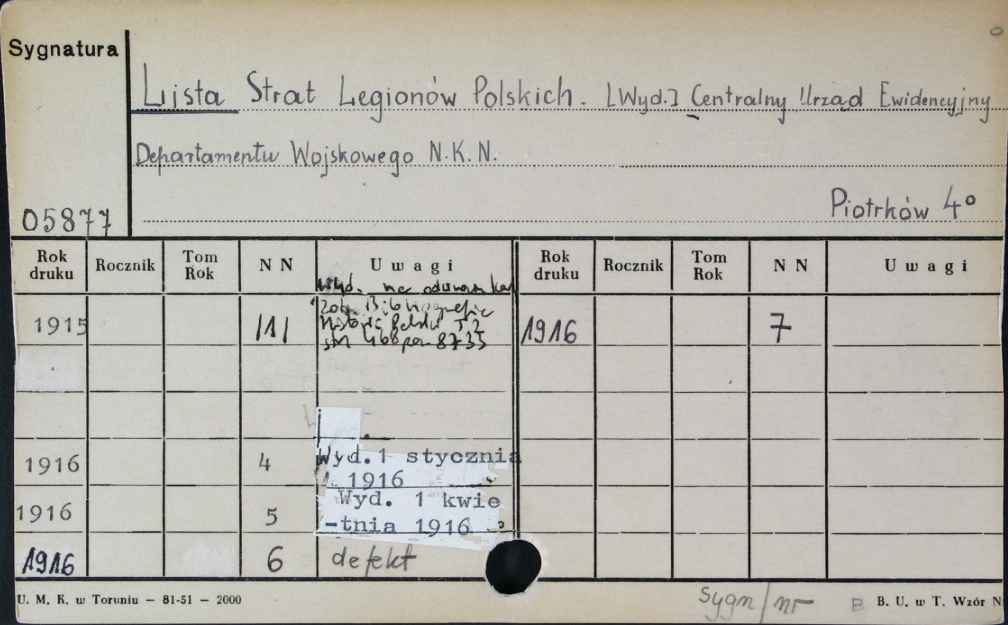 Sygnatura
Lista Strat Legionów Polskich. [Wyd.] Centralny Urząd Ewidencyjny
Departamentu Wojskowego N.K.N.
Piotrków 4°
05877
Rok druku Rocznik Tom Rok N N Uwagi Rok druku Rocznik Tom Rok N N Uwagi
wyd. na odwrocie
Zob. Bibliografia
1915 /1/ Historii Polski T.2 1916 7
str 468 poz 8735
1916 4 Wyd.1 stycznia
1916
1916 5 Wyd. 1 kwie
-tnia 1916
1916 6 defekt
U. M. K. w Toruniu — 81-51 — 2000 Sygn/nr B. U. w T. Wzór N